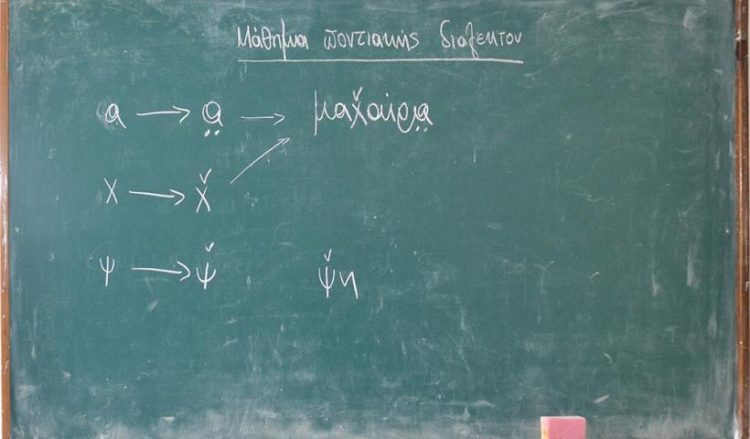 Μάθημα ποντιακής διαλέκτου
α → α̤ → μαχ̌αίρα̤
χ → χ̌
ψ → ψ̌ ψ̌η